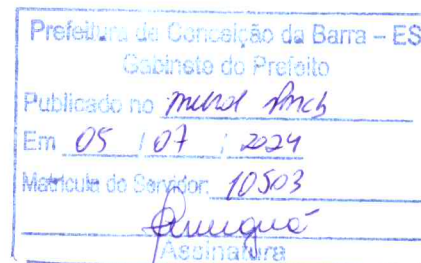 Prefeitura de Conceição da Barra – ES
Gabinete do Prefeito
Publicado no mural PMCB
Em 05 / 07 / 2024
Matrícula do Servidor: 10503
Assinatura